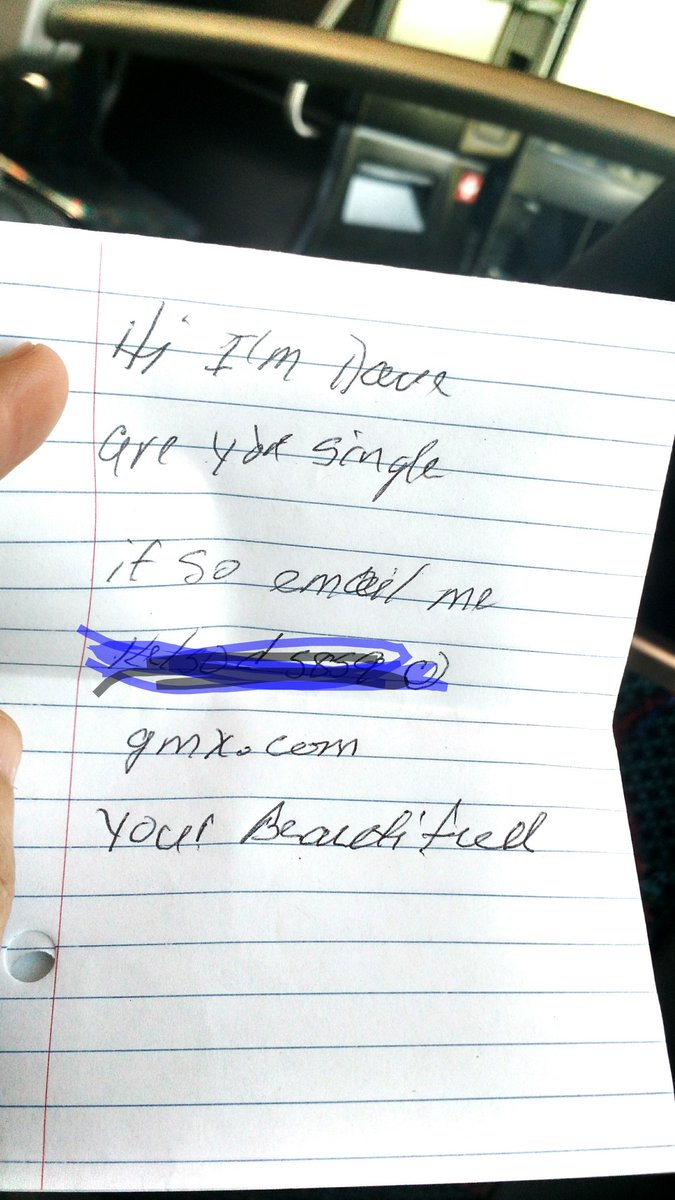 Hi I'm Dave
are you single
if so email me
@
gmx.com
your Beautiful